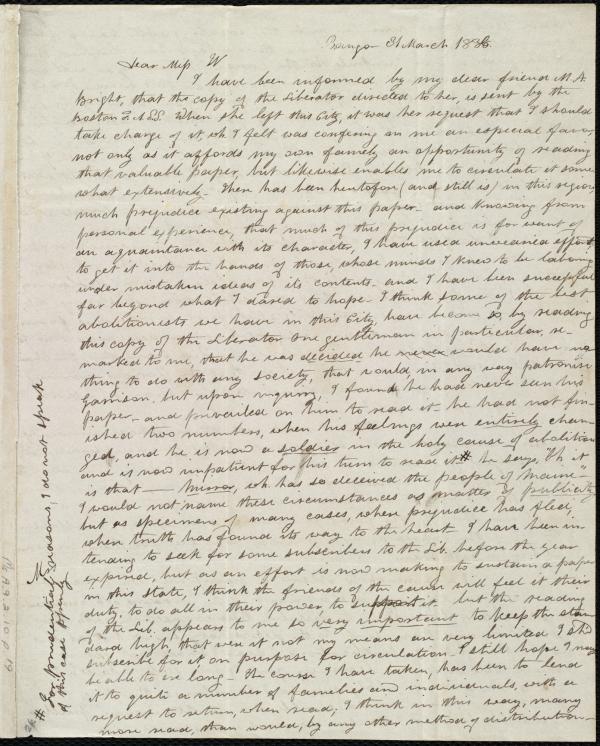 Bangor 31 March 1836.
Dear Miss W
I have been informed by my dear friend M. A
Bright, that the copy of the Liberator directed to her, is sent by the
Boston F. A S.S. When she left this City, it was her request that I should
take charge of it, wh I felt was confering on me an especial favor,
not only as it affords my own family an opportunity of reading
that valuable paper, but likewise enables me to circulate it some
what extensively. There has been heretofore (and still is) in this region,
much prejudice existing against this paper - and knowing from
personal experience, that much of this prejudice is for want of
an aquaintance with its character, I have used unwearied efforts,
to get it into the hands of those, whose minds I knew to be laboring
under mistaken ideas of its contents - and I have been successful
far beyond what I dared to hope - I think some of the best
abolitionists we have in this City have become so, by reading
this copy of the Liberator One gentleman in particular, re-
marked to me, that he was decided he never would have no
thing to do with any society, that would in any way patronise
Garrison, but upon inquiry, I found he had never seen his
paper - and prevailed on him to read it - he had not fin-
ished two numbers, when his feelings were entirely chan-
ged, and he is now a soldier in the holy cause of abolition
and is now impatient for his turn to read it # he says, "Oh it
is that — Mirror, wh has so deceived the people of Maine" -
I would not name these circumstances as matter of publicity
but as specimens of many cases, where prejudice has fled,
when truth has found its way to the heart I have been in-
tending to seek for some subscribers to the Lib. before the year
expired, but as an effort is now making to sustain a paper
in this State, I think the friends of the cause will feel it their
duty, to do all in their power, to support it but the reading
of the Lib. appears to me so very important to keep the stan
dard high, that were it not my means are very limited I shd
subscribe for it on purpose for circulation. I still hope I may
be able to ere long - The course I have taken, has been to lend
it to quite a number of families and individuals, with a
request to return, when read; I think in this way, many
more read, than would, by any other method of distribution -
# For prudential reasons, I do not speak
of this case openly